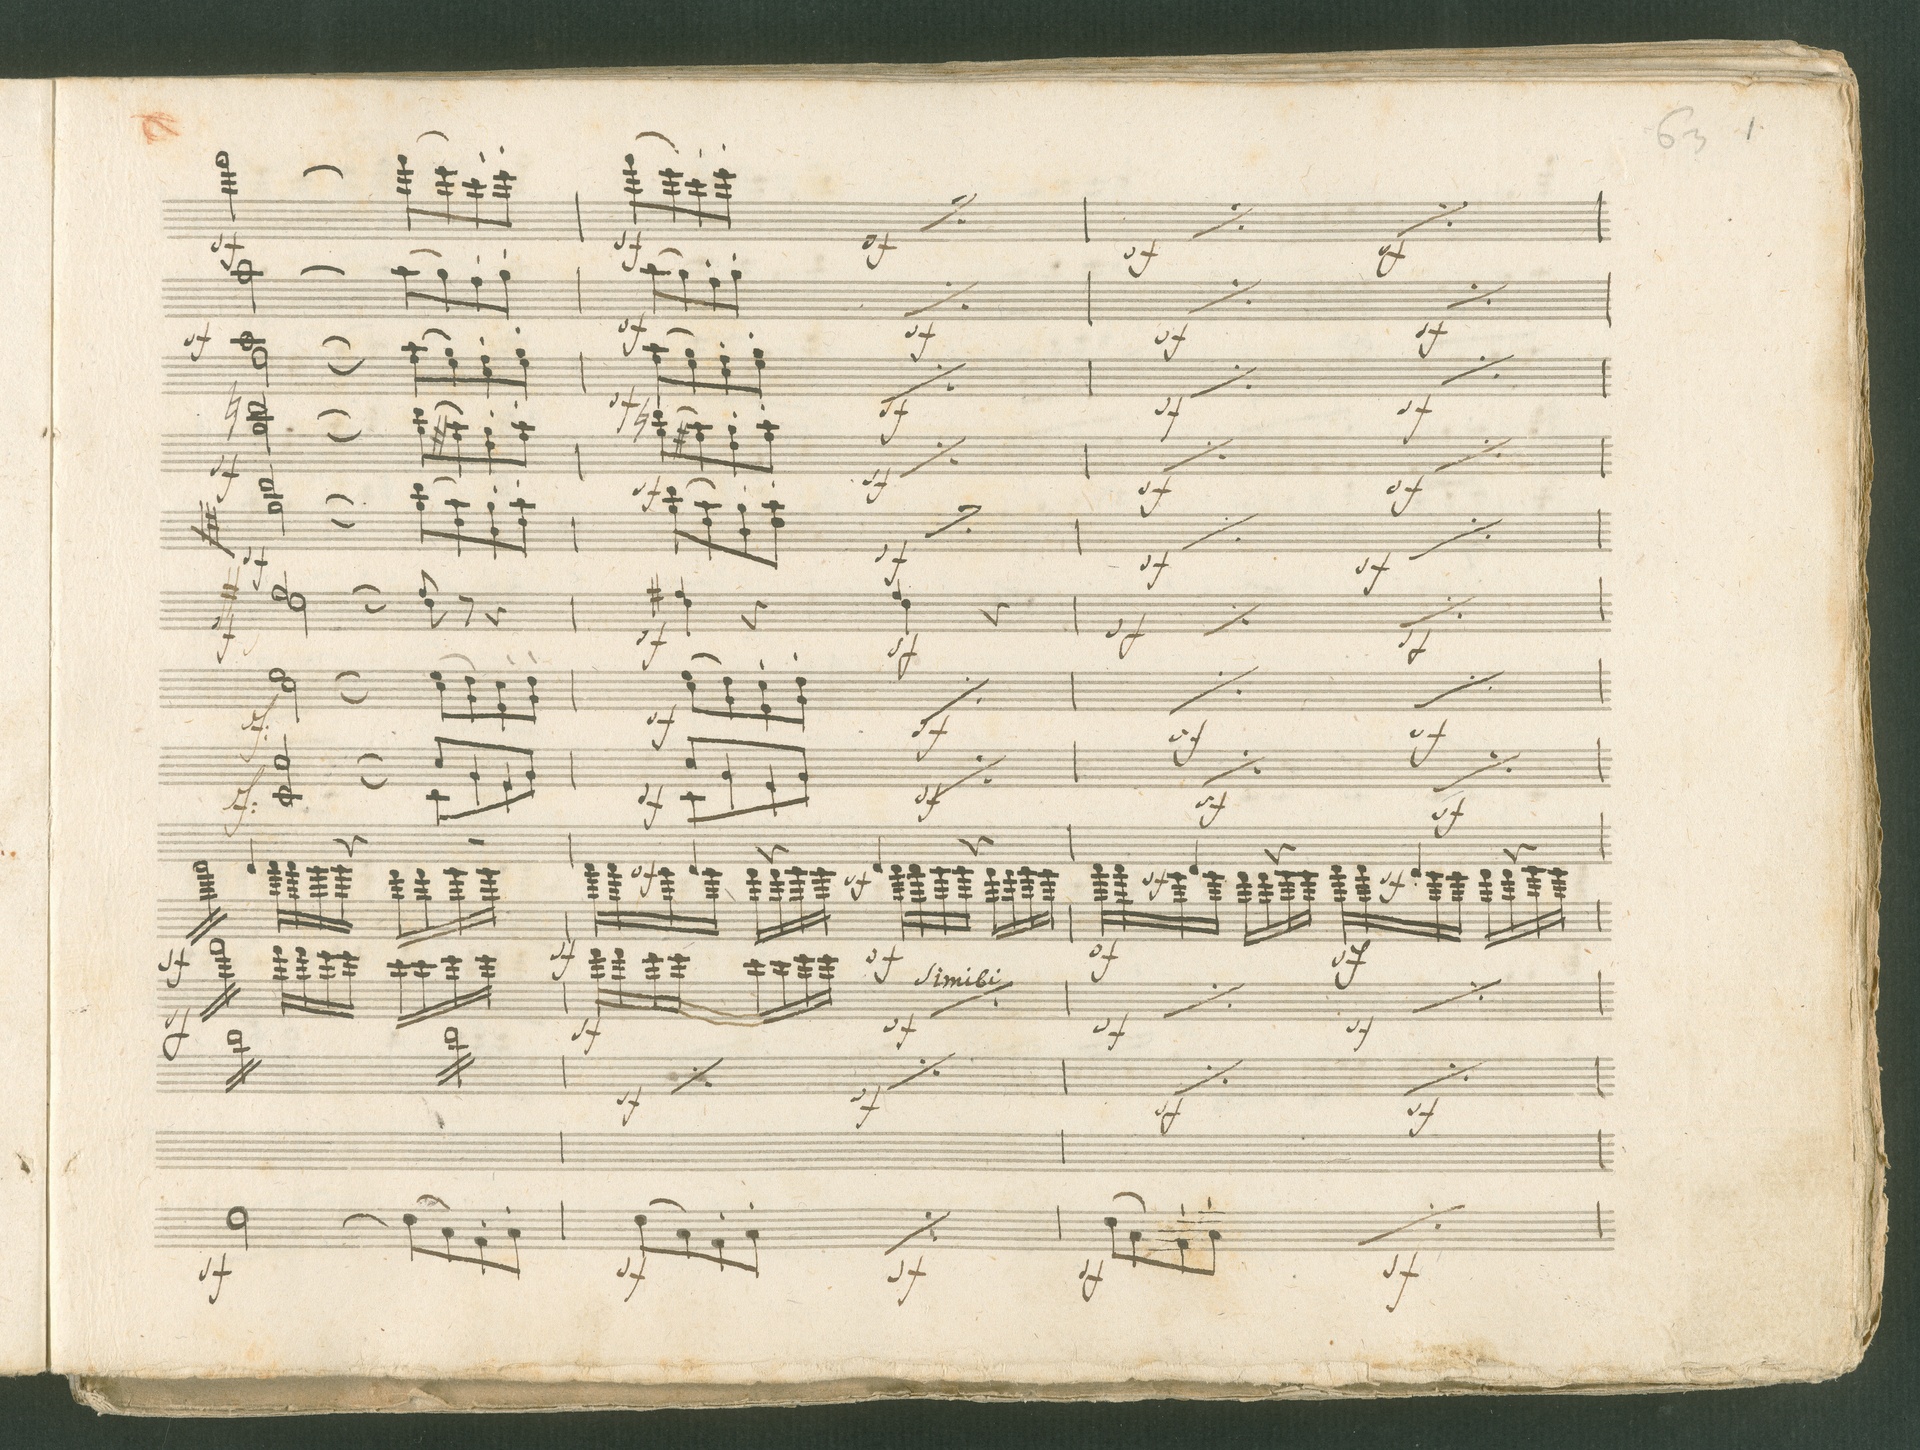 63 1
sf sf sf sf sf
sf sf sf sf sf
sf sf sf sf
sf sf sf sf sf
sf sf sf sf
sf sf sf sf sf
sf: sf sf sf sf
sf: sf sf sf sf
sf sf sf sf:
sf sf sf sf sf
Simili
sf sf sf sf sf
sf sf sf sf
sf sf sf sf sf